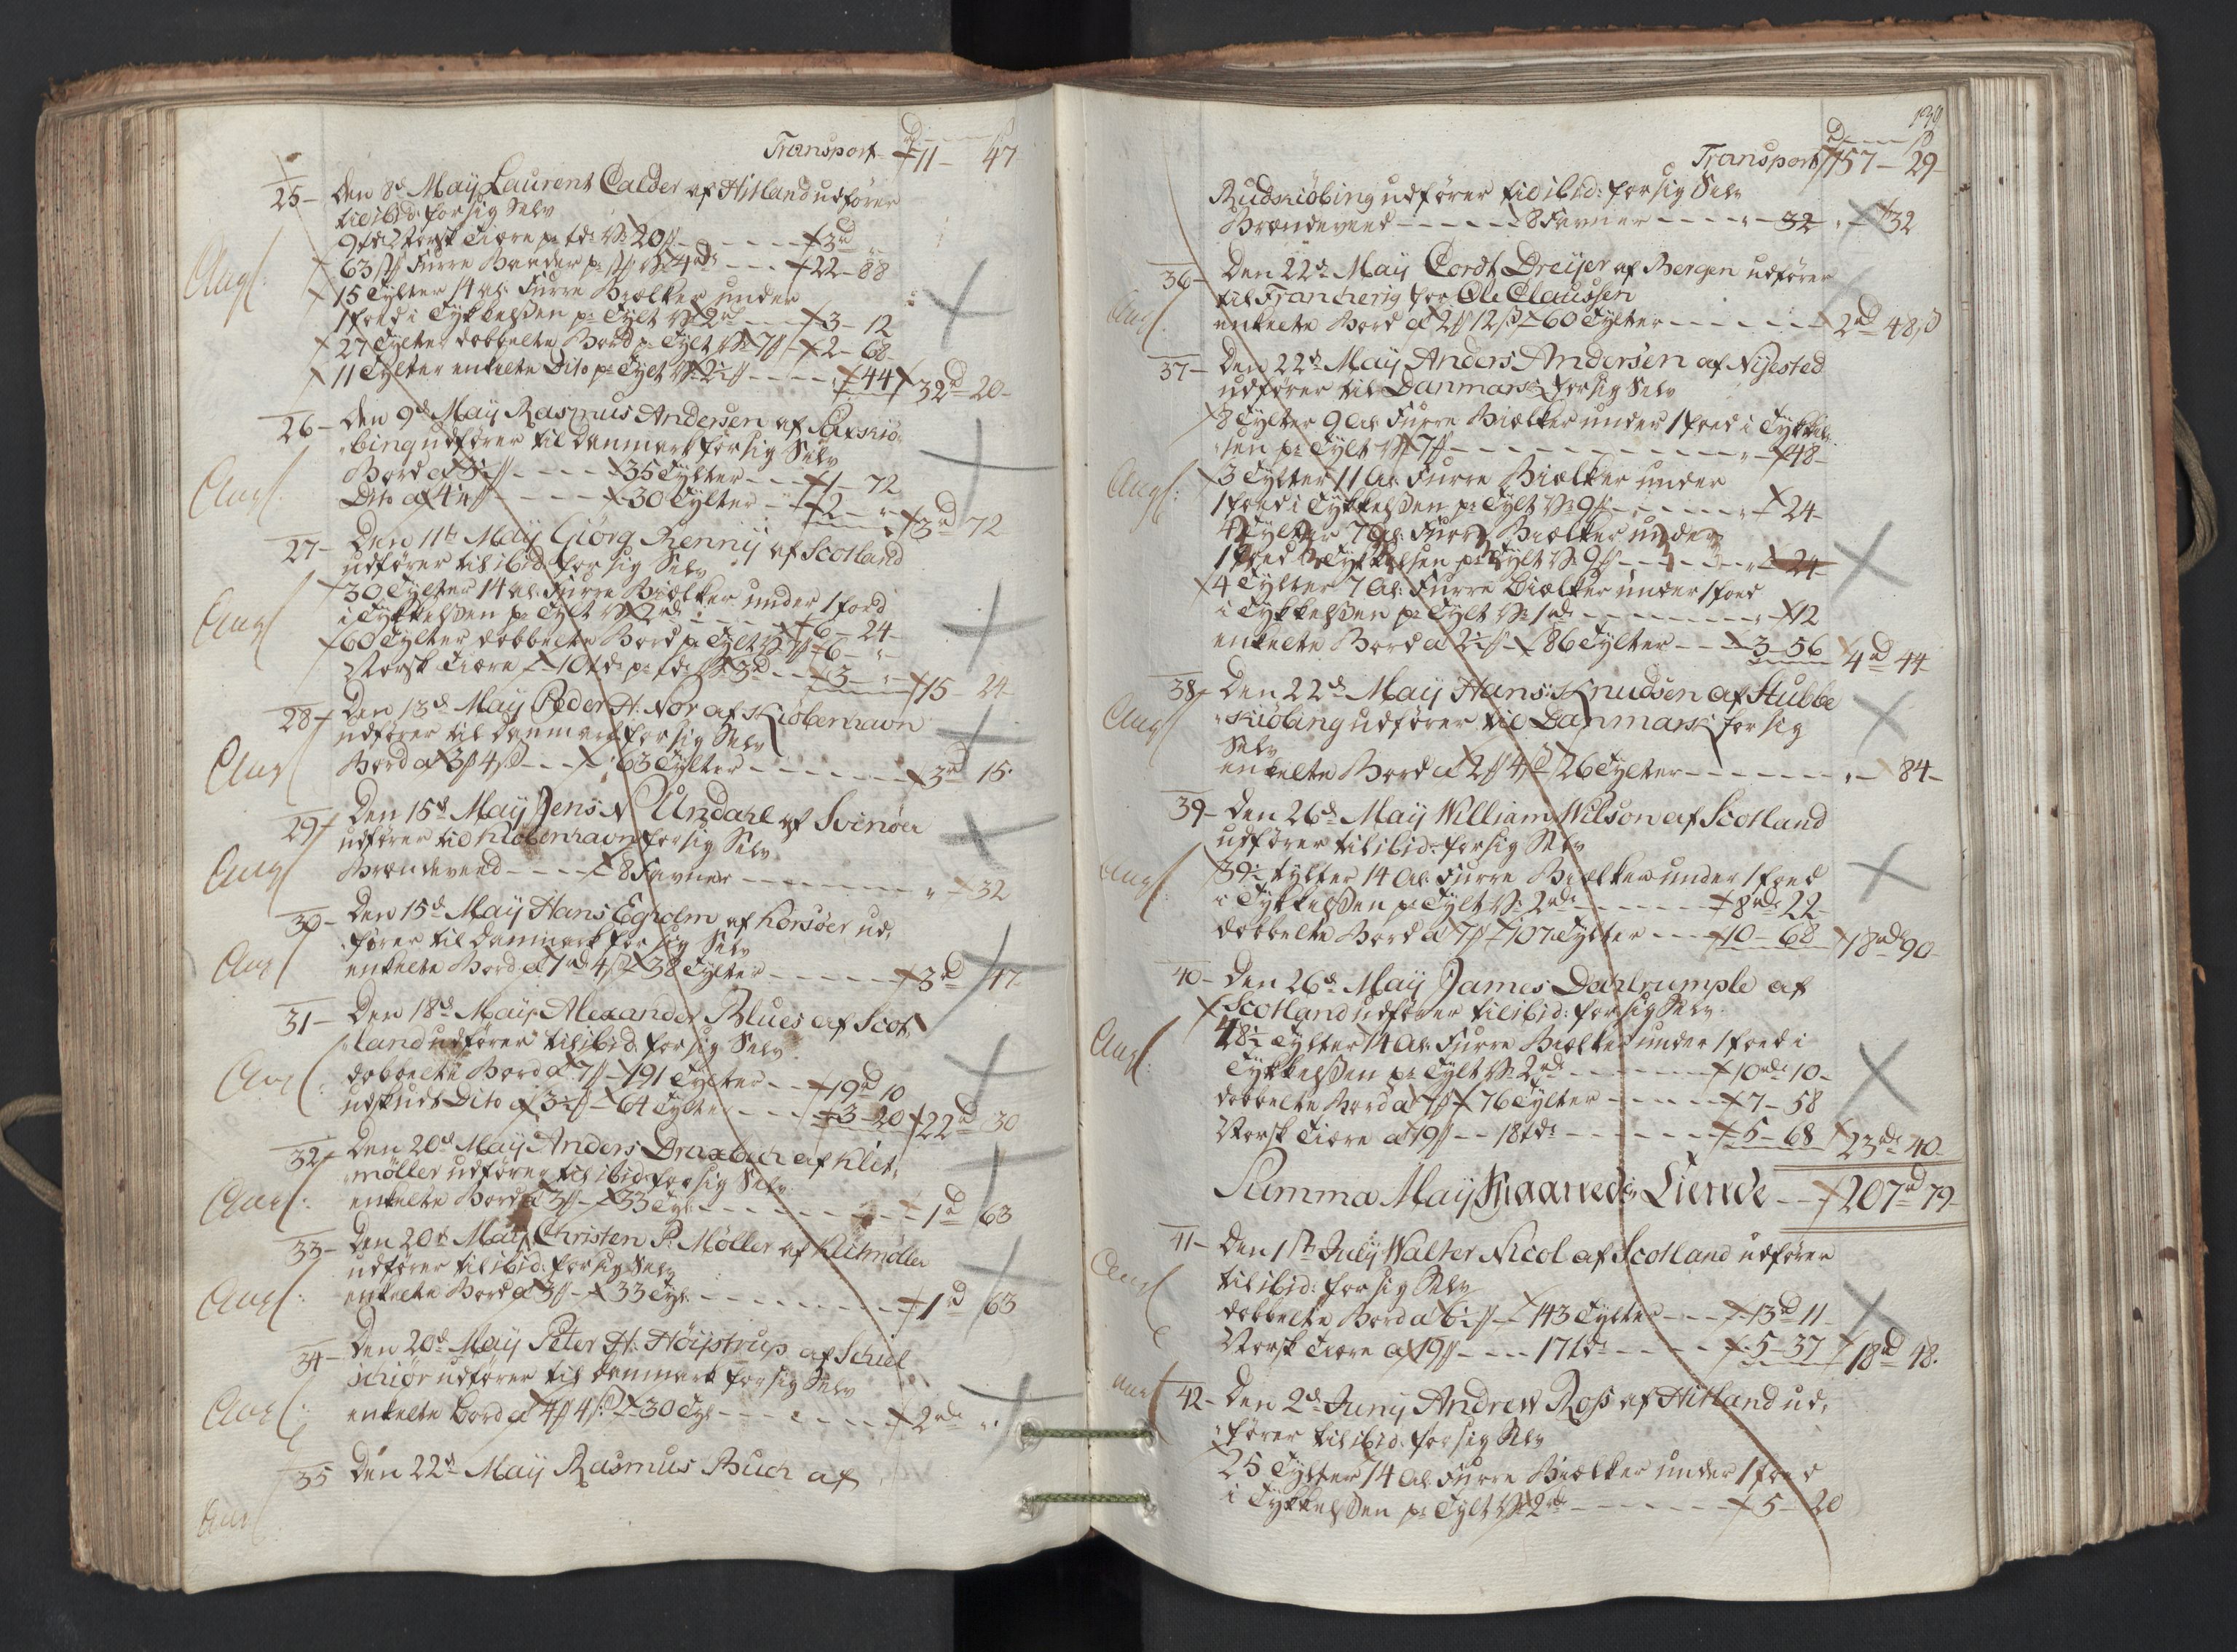 Transport 11 – 47
25 – Den 8de Maÿ Laurent Calder af Hitland udfører
til ibid: for sig Selv
9 tdr Norsk Tiære pr td 20 ß – 3
63 Furre Baander pr 4 – 22 – 88
15 Tylter 14 Al: Furre Biælker under
1 foed i Tykkelßen pr Tylt 2 – 3 – 12
27 Tylter dobbelte Bord pr Tylt 7 – 2 – 68
11 Tylter enkelte Dito pr Tylt 2½ – 44 32 – 20
26 – Den 9de Maÿ Rasmus Andersen af
bing udfører til Danmark for sig Selv
Bord – 35 Tylter – 1 – 72
Dito – 30 Tylter – 2 – 3 72
27 – Den 11te Maÿ Giörg Rennij af Scotland
udfører til ibid: for sig Selv
30 Tylter 14 Al: Furre Biælker under 1 foed
i Tykkelßen pr Tylt 2 – 6 – 24
60 Tylter dobbelte Bord pr Tylt – 6 –
Norsk Tiære – 10 tdr pr td – 3 – 15 – 24
28 – Den 13de Maÿ Peder H: Nor af Kiöbenhavn
udfører til Danmark for sig Selv
Bord a 3 4 – 63 Tylter – 3 15
29 – Den 15de Maÿ Jens N Undahl af Svinöer
udfører til Kiöbenhavn for sig Selv
Brændeveed – 8 Favner – 32
30 – Den 15de Maÿ Hans Egholm af Korsöer ud:
fører til Danmark for sig Selv
enkelte Bord a 4 – 38 Tylter – 3 47
31 – Den 18de Maÿ Alexander Blues af Scot:
land udfører til ibid: for sig Selv
dobbelte Bord a 7 – 191 Tylter – 19 10
udskudt Dito a 3½ – 64 Tylter – 3 – 20 22 30
32 – Den 20de Maÿ Anders Draxbech af Klit:
möller udfører til ibid: for sig Selv
enkelte Bord a 3 – 33 Tyl: – 1 63
33 – Den 20de Maÿ Christen P: Möller af Klitmöller
udfører til ibid: for sig Selv
enkelte Bord a 3 – 33 Tyl: – 1 63
34 – Den 20de Maÿ Peter H: Höijstrup af Schiel
schiör udfører til Danmark for sig Selv
enkelte Bord a 4 4 – 30 Tyl – 2
35 Den 22de Maÿ Rasmus Buch af
139
Transport 157 – 29
Rudskiöbing udfører til ibid: for sig Selv
Brændeveed – 8 Favner – 32 – 32
36 – Den 22de Maÿ Cordt Dreÿer af Bergen udfører
til Francherig for Ole Claussen
enkelte Bord a 2 12 – 60 Tylter – 2 48 ß
37 – Den 22de Maÿ Anders Andersen af Nÿested
udfører til Danmark for sig Selv
8 Tylter 9 Al: Furre Biælker under 1 foed i Tykkel:
sen pr Tylt 7 – 48
3 Tylter 11 Al: Furre Biælker under
1 foed i Tykkelßen pr Tylt 9 – 24
4 Tylter 7 Al: Furre Biælker under
1 foed i Tykkelsen pr Tylt 9 – 24
4 Tylter 7 Al: Furre Biælker under 1 foed
i Tykkelßen pr Tylt 1 – 12
enkelte Bord a 2½ – 86 Tylter – 3 – 56 4 44
38 Den 22de Maÿ Hans Knudsen af Stubbe
kiöbing udfører til Danmark for sig
Selv
enkelte Bord a 2 4 26 Tylter – 84
39 – Den 26de Maÿ William Wilson af Scotland
udfører til ibid: for sig Selv
39½ Tylter 14 Al: Furre Biælker under 1 foed
i Tykkelßen pr Tylt 2 – 8 22
dobbelte Bord a 7 – 107 Tylter – 10 – 68 18 90
40 – Den 26de Maÿ James Dahlrumple af
Scotland udfører til ibid: for sig Selv
48½ Tylter 14 Al: Furre Biælker under 1 foed i
Tykkelßen pr Tylt 2 – 10 10
dobbelte Bord a 7 – 76 Tylter – 7 – 58
Norsk Tiære a 19 – 18 tdr – 5 – 68 23 40
Summa Maÿ Maaneds Tiende – 207 79
41 – Den 1ste Julÿ Walter Nicol af Scotland udfører
til ibid: for sig Selv
dobbelte Bord a 6½ – 143 Tylter – 13 11
Norsk Tiære a 19 – 17 tdr – 5 – 37 18 48
42 – Den 2de Junij Andrew Ross af Hitland ud:
fører til ibid: for sig Selv
25 Tylter 14 Al: Furre Biælker under 1 foed
i Tykkelßen pr Tylt 2 – 5 – 20